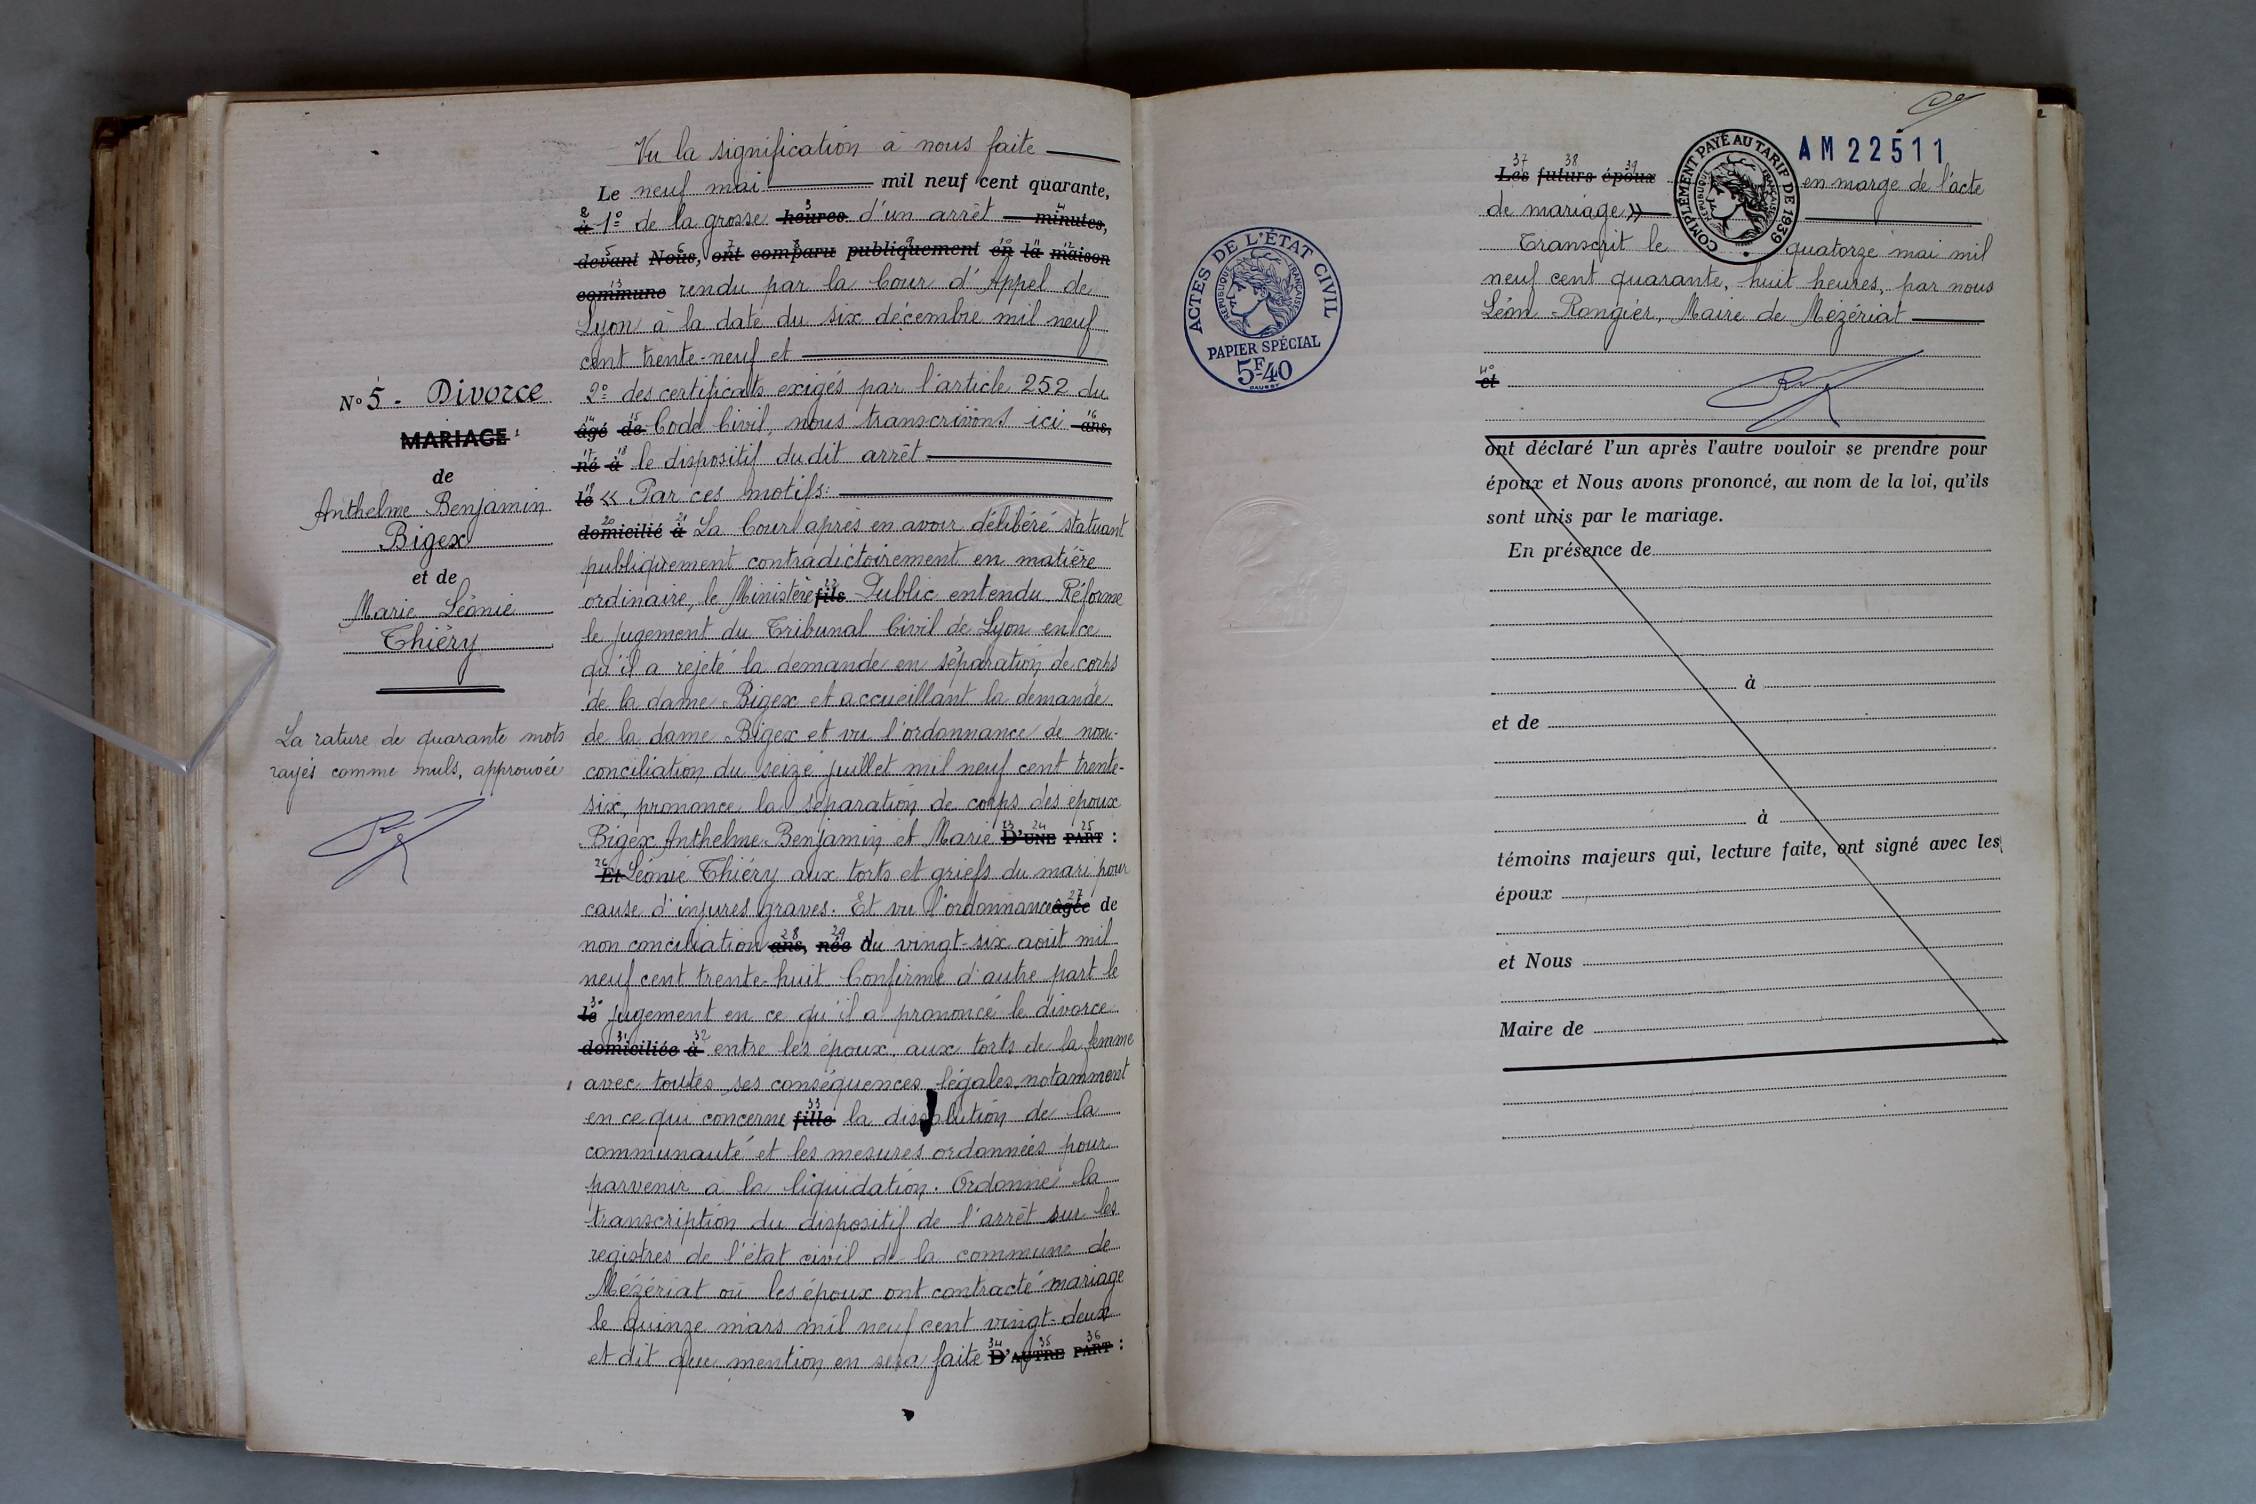 Vu la signification à nous faite
Le neuf mai mil neuf cent quarante,
à 1º de la grosse heures d'un arrêt minutes,
devant Nous, ont comparu publiquement en la maison
commune rendu par la Cour d'Appel de
Lyon à la date du six décembre mil neuf
cent trente-neuf et
2º des certificats exigés par l'article 252 du
âgé de Code Civil, nous transcrivons ici ans,
né à le dispositif dudit arrêt
le « Par ces motifs:
domicilié à La Cour après en avoir délibéré statuant
publiquement contradictoirement en matière
ordinaire, le Ministère fils Public entendu. Réforme
le jugement du Tribunal Civil de Lyon en ce
qu'il a rejeté la demande en séparation de corps
de la dame Bigex et accueillant la demande
de la dame Bigex et vu l'ordonnance de non-
conciliation du seize juillet mil neuf cent trente-
six, prononce la séparation de corps des époux
Bigex Anthelme Benjamin et Marie D'UNE PART :
Et Léonie Thiéry aux torts et griefs du mari pour
cause d'injures graves. Et vu l'ordonnance âgée de
non conciliation ans, née du vingt-six août mil
neuf cent trente-huit Confirme d'autre part le
le jugement en ce qu'il a prononcé le divorce
domiciliée à entre les époux, aux torts de la femme
avec toutes ses conséquences légales, notamment
en ce qui concerne fille la dissolution de la
communauté et les mesures ordonnées pour
parvenir à la liquidation. Ordonne la
transcription du dispositif de l'arrêt sur les
registres de l'état civil de la commune de
Mézériat où les époux ont contracté mariage
le quinze mars mil neuf cent vingt-deux
et dit que mention en sera faite D'AUTRE PART :
Nº 5 - Divorce
MARIAGE
de
Anthelme Benjamin
Bigex
et de
Marie Léonie
Thiéry
La rature de quarante mots
rayés comme nuls, approuvée
ACTES DE L'ÉTAT CIVIL
RÉPUBLIQUE FRANÇAISE
PAPIER SPÉCIAL
5F.40
COMPLÉMENT PAYÉ AU TARIF DE 1939
RÉPUBLIQUE FRANÇAISE
AM22511
Les futurs époux en marge de l'acte
de mariage »
Transcrit le quatorze mai mil
neuf cent quarante, huit heures, par nous
Léon Rongier, Maire de Mézériat
et
ont déclaré l'un après l'autre vouloir se prendre pour
époux et Nous avons prononcé, au nom de la loi, qu'ils
sont unis par le mariage.
En présence de
à
et de
à
témoins majeurs qui, lecture faite, ont signé avec les
époux
et Nous
Maire de